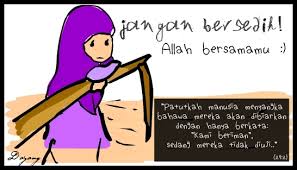 jangan bersedih!
Allah bersamamu :)
"Patutkah manusia menyangka
bahawa mereka akan dibiarkan
dengan hanya berkata:
"Kami beriman",
sedang mereka tidak diuji.."
(29:2)